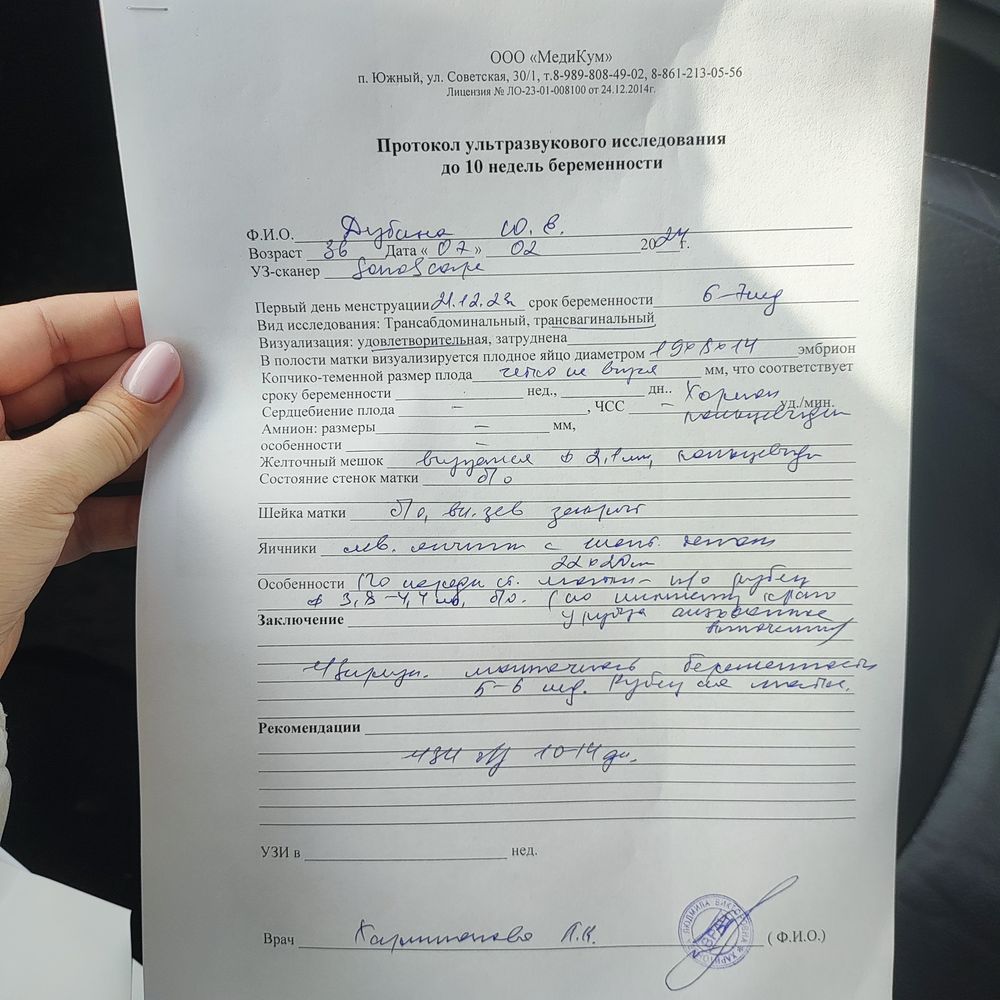 ООО «МедиКум»
п. Южный, ул. Советская, 30/1, т.8-989-808-49-02, 8-861-213-05-56
Лицензия № ЛО-23-01-008100 от 24.12.2014г.
Протокол ультразвукового исследования
до 10 недель беременности
Ф.И.О. Дубина Ю. В.
Возраст 36 Дата « 07 » 02 2024 г.
УЗ-сканер SonoScape
Первый день менструации 21.12.23 срок беременности 6-7нед
Вид исследования: Трансабдоминальный, трансвагинальный
Визуализация: удовлетворительная, затруднена
В полости матки визуализируется плодное яйцо диаметром 19×8×14 эмбрион
Копчико-теменной размер плода четко не мм, что соответствует
сроку беременности нед., дн.. Хорион
Сердцебиение плода – , ЧСС – уд./мин.
Амнион: размеры – мм,
особенности –
Желточный мешок d 2,1мм,
Состояние стенок матки б/о
Шейка матки б/о, вн. зев закрыт
Яичники лев. яичник с желт. телом
22×20мм
Особенности По передн ст. матки - п/о рубец
d 3,8-4,4мм, б/о. (по нижнему краю
у рубца
Заключение
маточной беременности
5-6 нед. Рубец на матке.
Рекомендации
УЗИ ч/з 10-14 дн.
УЗИ в нед.
Врач Л.В. ( Ф.И.О.)
ЛЮДМИЛА ВИКТОРОВНА
ВРАЧ